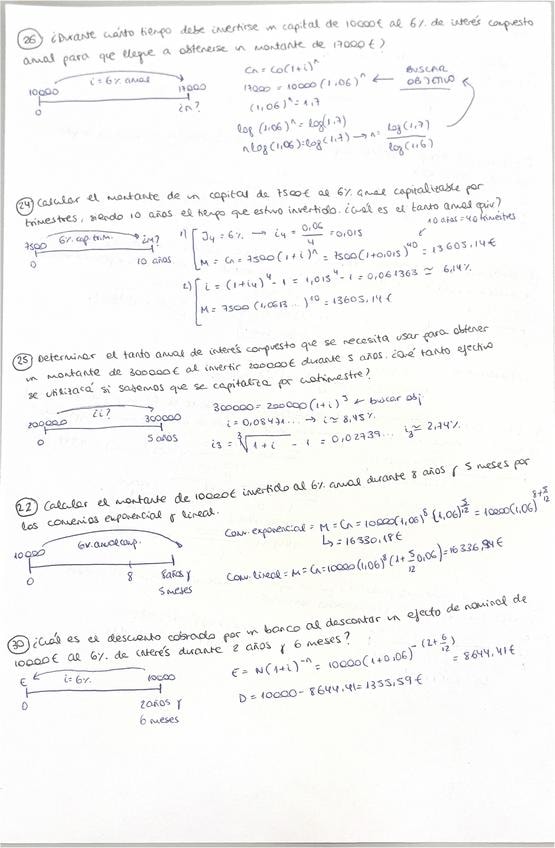 26 ¿Durante cuánto tiempo debe invertirse un capital de 10000€ al 6% de interés compuesto
anual para que llegue a obtenerse un montante de 17000€?
i=6% anual
10000 17000
0 ¿n?
Cn = Co(1+i)^n
17000 = 10000 (1,06)^n ← BUSCAR OBJETIVO
(1,06)^n = 1,7
log (1,06)^n = log(1,7)
n log (1,06) = log (1,7) → n = log(1,7) / log(1,6)
24 Calcular el montante de un capital de 7500€ al 6% anual capitalizable por
trimestres, siendo 10 años el tiempo que estuvo invertido. ¿Cuál es el tanto anual equiv?
7500 6% cap. trim. ¿M?
0 10 años
10 años = 40 trimestres
1) J4 = 6% → i4 = 0,06/4 = 0,015
M = Cn = 7500(1+i)^n = 7500(1+0,015)^40 = 13605,14€
2) i = (1+i4)^4 - 1 = 1,015^4 - 1 = 0,061363 ≃ 6,14%
M = 7500 (1,0613...)^10 = 13605,14€
25 Determinar el tanto anual de interés compuesto que se necesita usar para obtener
un montante de 300000€ al invertir 200000€ durante 5 años. ¿Qué tanto efectivo
se utilizará si sabemos que se capitaliza por cuatrimestre?
¿i?
200000 300000
0 5 años
300000 = 200000 (1+i)^5 ← buscar obj.
i = 0,08471... → i ≃ 8,45%
i3 = ∛(1+i) - 1 = 0,02739... i3 ≃ 2,74%
22 Calcular el montante de 10000€ invertido al 6% anual durante 8 años y 5 meses por
los convenios exponencial y lineal.
10000 6% anual comp.
0 8 8 años y
5 meses
Conv. exponencial = M = Cn = 10000(1,06)^8 (1,06)^5/12 = 10000(1,06)^8+5/12
↳ = 16330,18€
Conv. lineal = M = Cn = 10000 (1,06)^8 (1 + 5/12 0,06) = 16336,94€
30 ¿Cuál es el descuento cobrado por un banco al descontar un efecto de nominal de
10000€ al 6% de interés durante 2 años y 6 meses?
E i=6% 10000
0 2 años y
6 meses
E = N(1+i)^-n = 10000(1+0,06)^-(2+6/12) = 8644,41€
D = 10000 - 8644,41 = 1355,59€